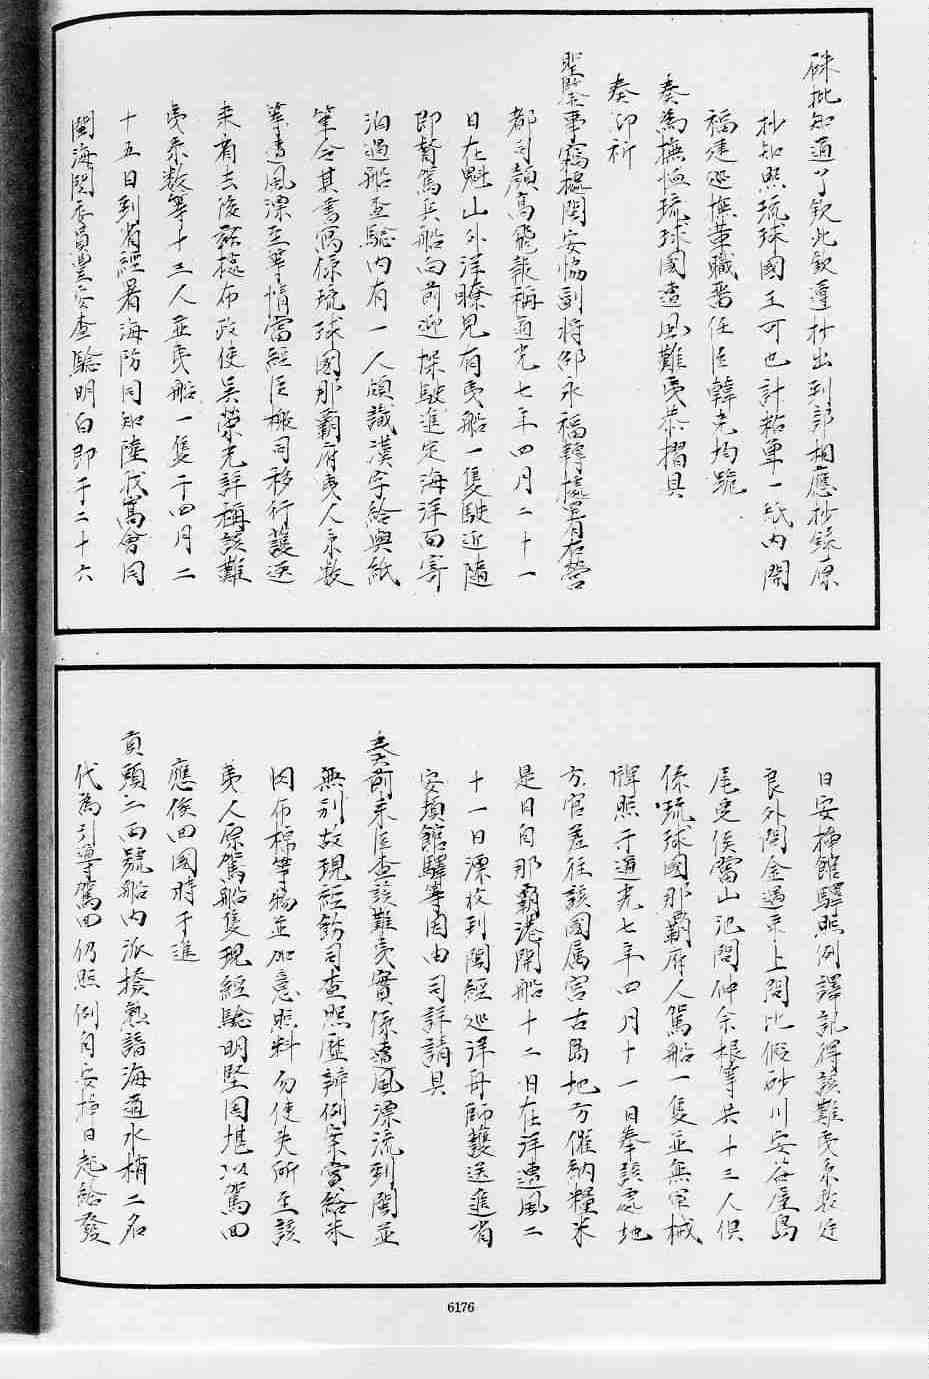 硃批知道了欽此欽遵抄出到部相應抄錄原
抄知照琉球國王可也計粘單一紙內開
福建巡撫革職留任臣韓克均跪
奏為撫恤琉球國遭風難夷恭摺具
奏仰祈
聖鑒事竊據閩安協副將邵永福轉據署右營
都司顏高飛報稱道光七年四月二十一
日在魁山外洋瞭見有夷船一隻駛近隨
即督駕兵船向前迎探駛進定海洋面寄
泊過船查驗內有一人頗識漢字給與紙
筆令其書寫係琉球國那霸府夷人京牧
等遭風漂至等情當經臣檄司移行護送
來省去後茲據布政使吳榮光詳稱該難
夷京牧等十三人並夷船一隻于四月二
十五日到省經署海防同知陸我嵩會同
閩海關委員豐安查驗明白即于二十六
日安插館驛照例譯訊得該難夷京牧廷
良外間金過平上間比假砂川安谷屋島
尾宮侯當山池間仲余根等共十三人俱
係琉球國那霸府人駕船一隻並無軍械
牌照于道光七年四月十一日奉該處地
方官差往該國屬宮古島地方催納糧米
是日自那霸港開船十二日在洋遭風二
十一日漂收到閩經巡洋舟師護送進省
安頓館驛等因由司詳請具
奏前來臣查該難夷實係遭風漂流到閩並
無別故現經飭司查照歷辦例案當給米
肉布棉等物並加意照料勿使失所至該
夷人原駕船隻現經驗明堅固堪以駕回
應俟回國時于進
貢頭二兩號船內派撥熟諳海道水梢二名
代為引導駕回仍照例自安插日起給發
6176